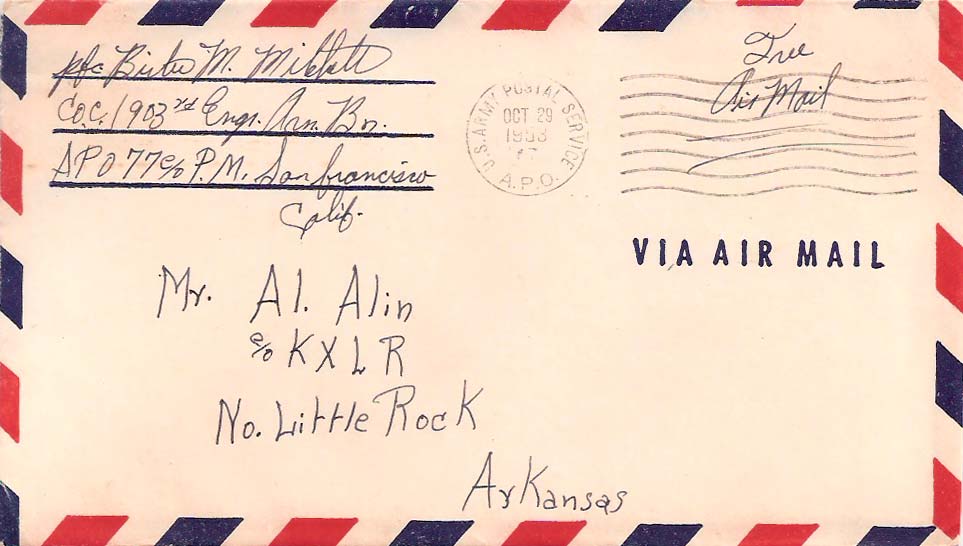 Pfc M.
Co.C. 1903rd Engr. Avn. Bn.
APO 77 c/o P.M. San francisco
Calif.
U.S. ARMY POSTAL SERVICE
OCT 29
1953
A.P.O.
Free
Air Mail
VIA AIR MAIL
Mr. Al. Alin
c/o KXLR
No. Little Rock
Arkansas